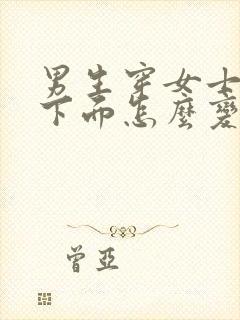 男生穿女士
下面怎麼變
曾亞